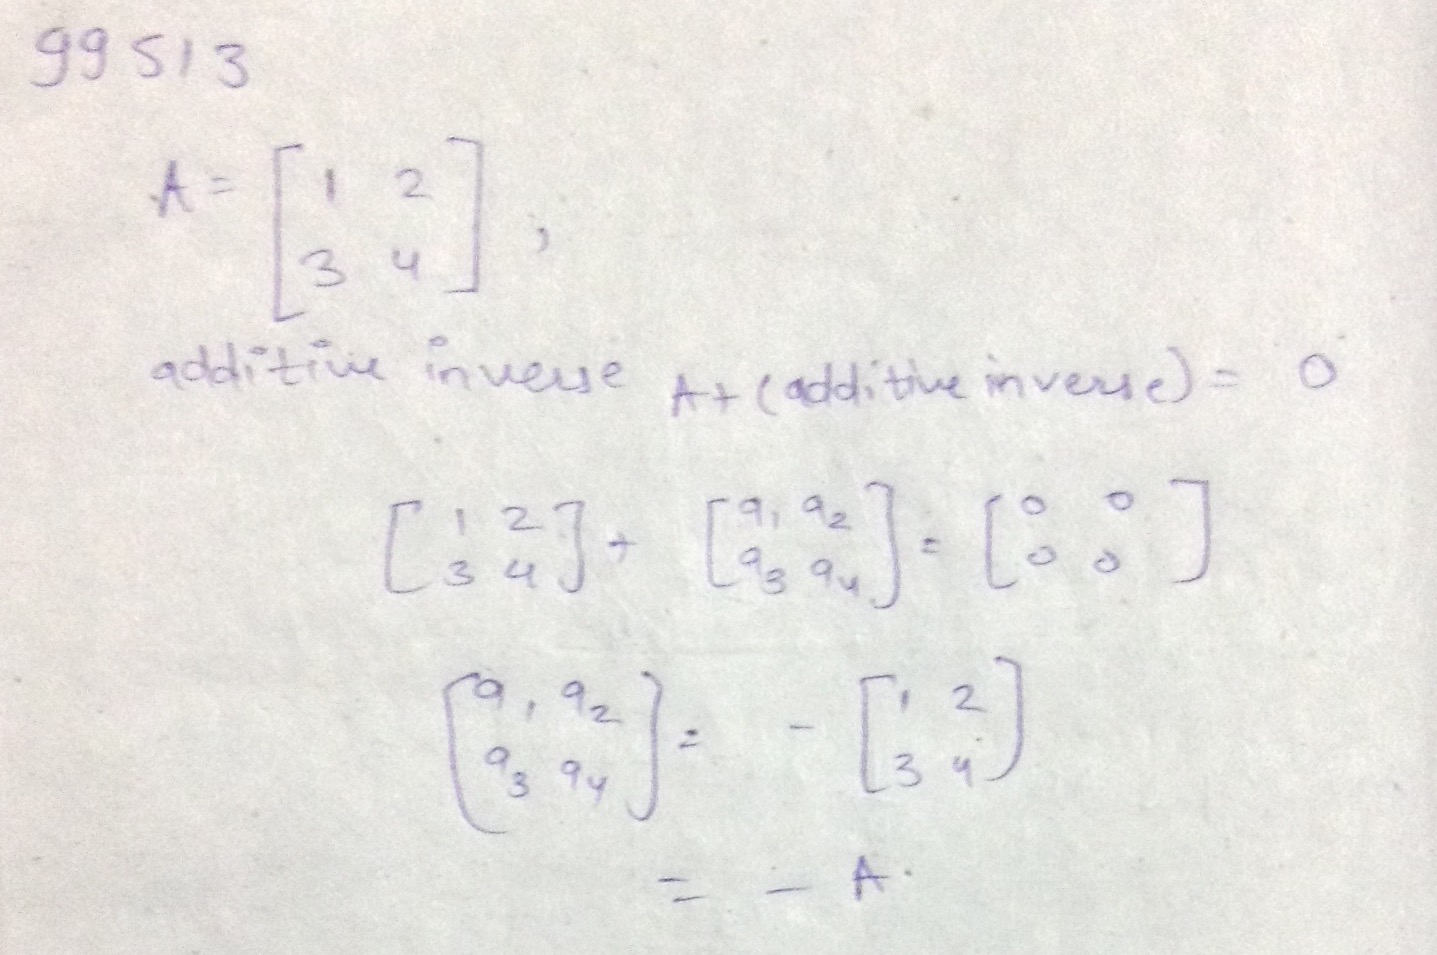 99513
A = [ 1 2
3 4 ] ,
additive inverse A + (additive inverse) = 0
[ 1 2
3 4 ] + [ a1 a2
a3 a4 ] = [ 0 0
0 0 ]
[ a1 a2
a3 a4 ] = - [ 1 2
3 4 ]
= - A.